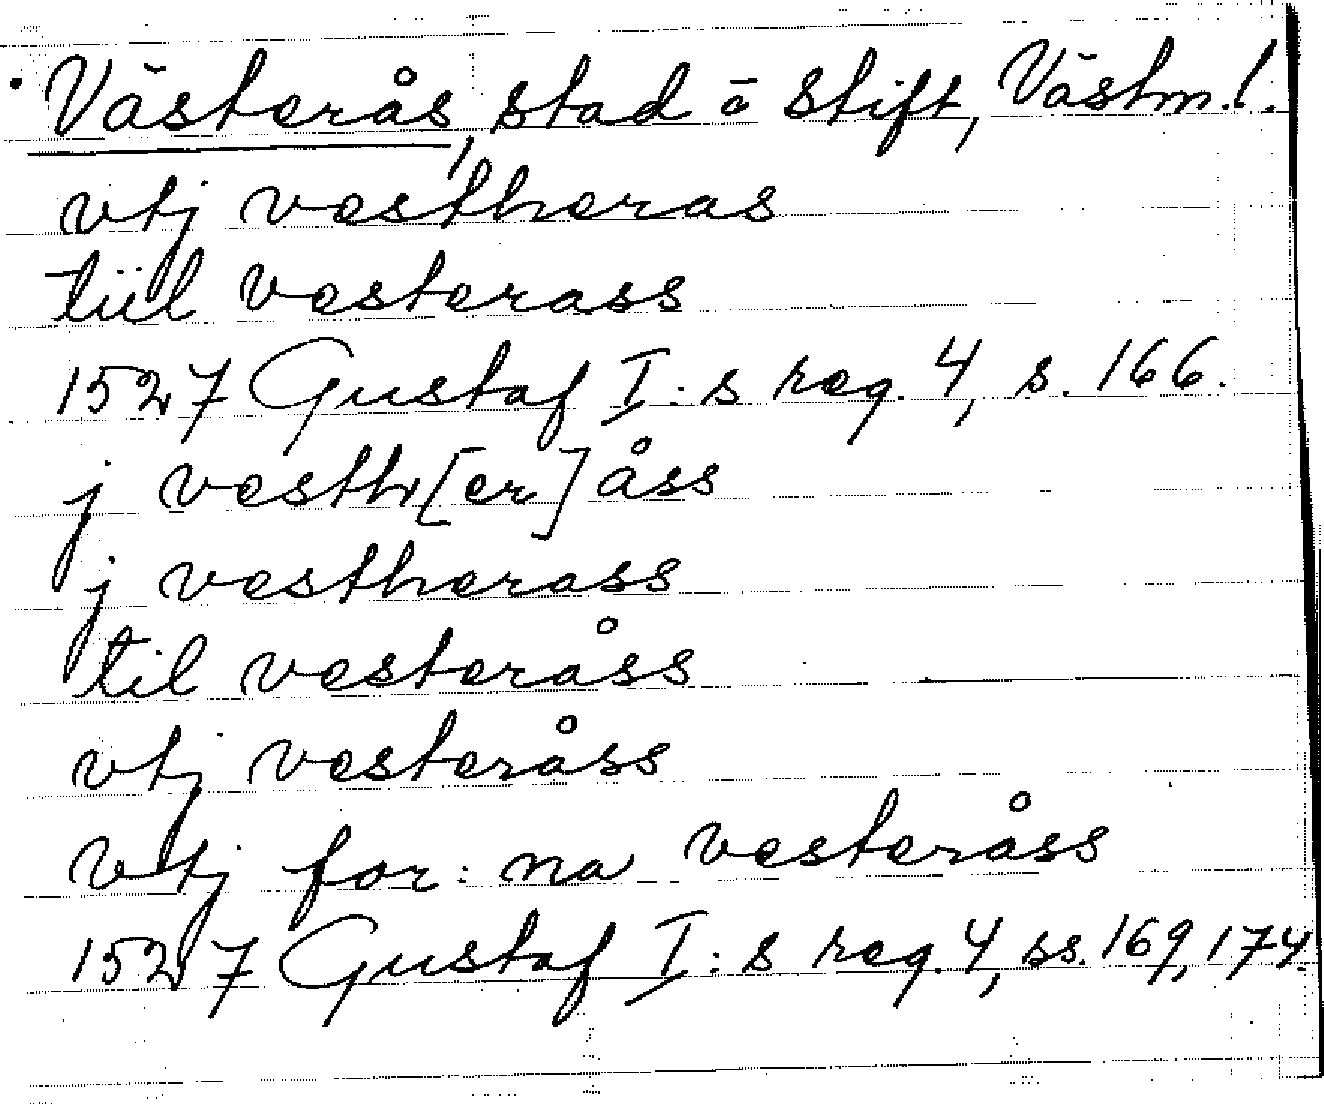 Västerås, stad ō stift, Västm.l.
vtj vestheras
tiil vesterass
1527 Gustaf I:s reg. 4, s. 166.
j vesth[er]åss
j vestherass
til vesteråss
vtj vesteråss
vtj for:na vesteråss
1527 Gustaf I:s reg. 4, ss. 169, 174.